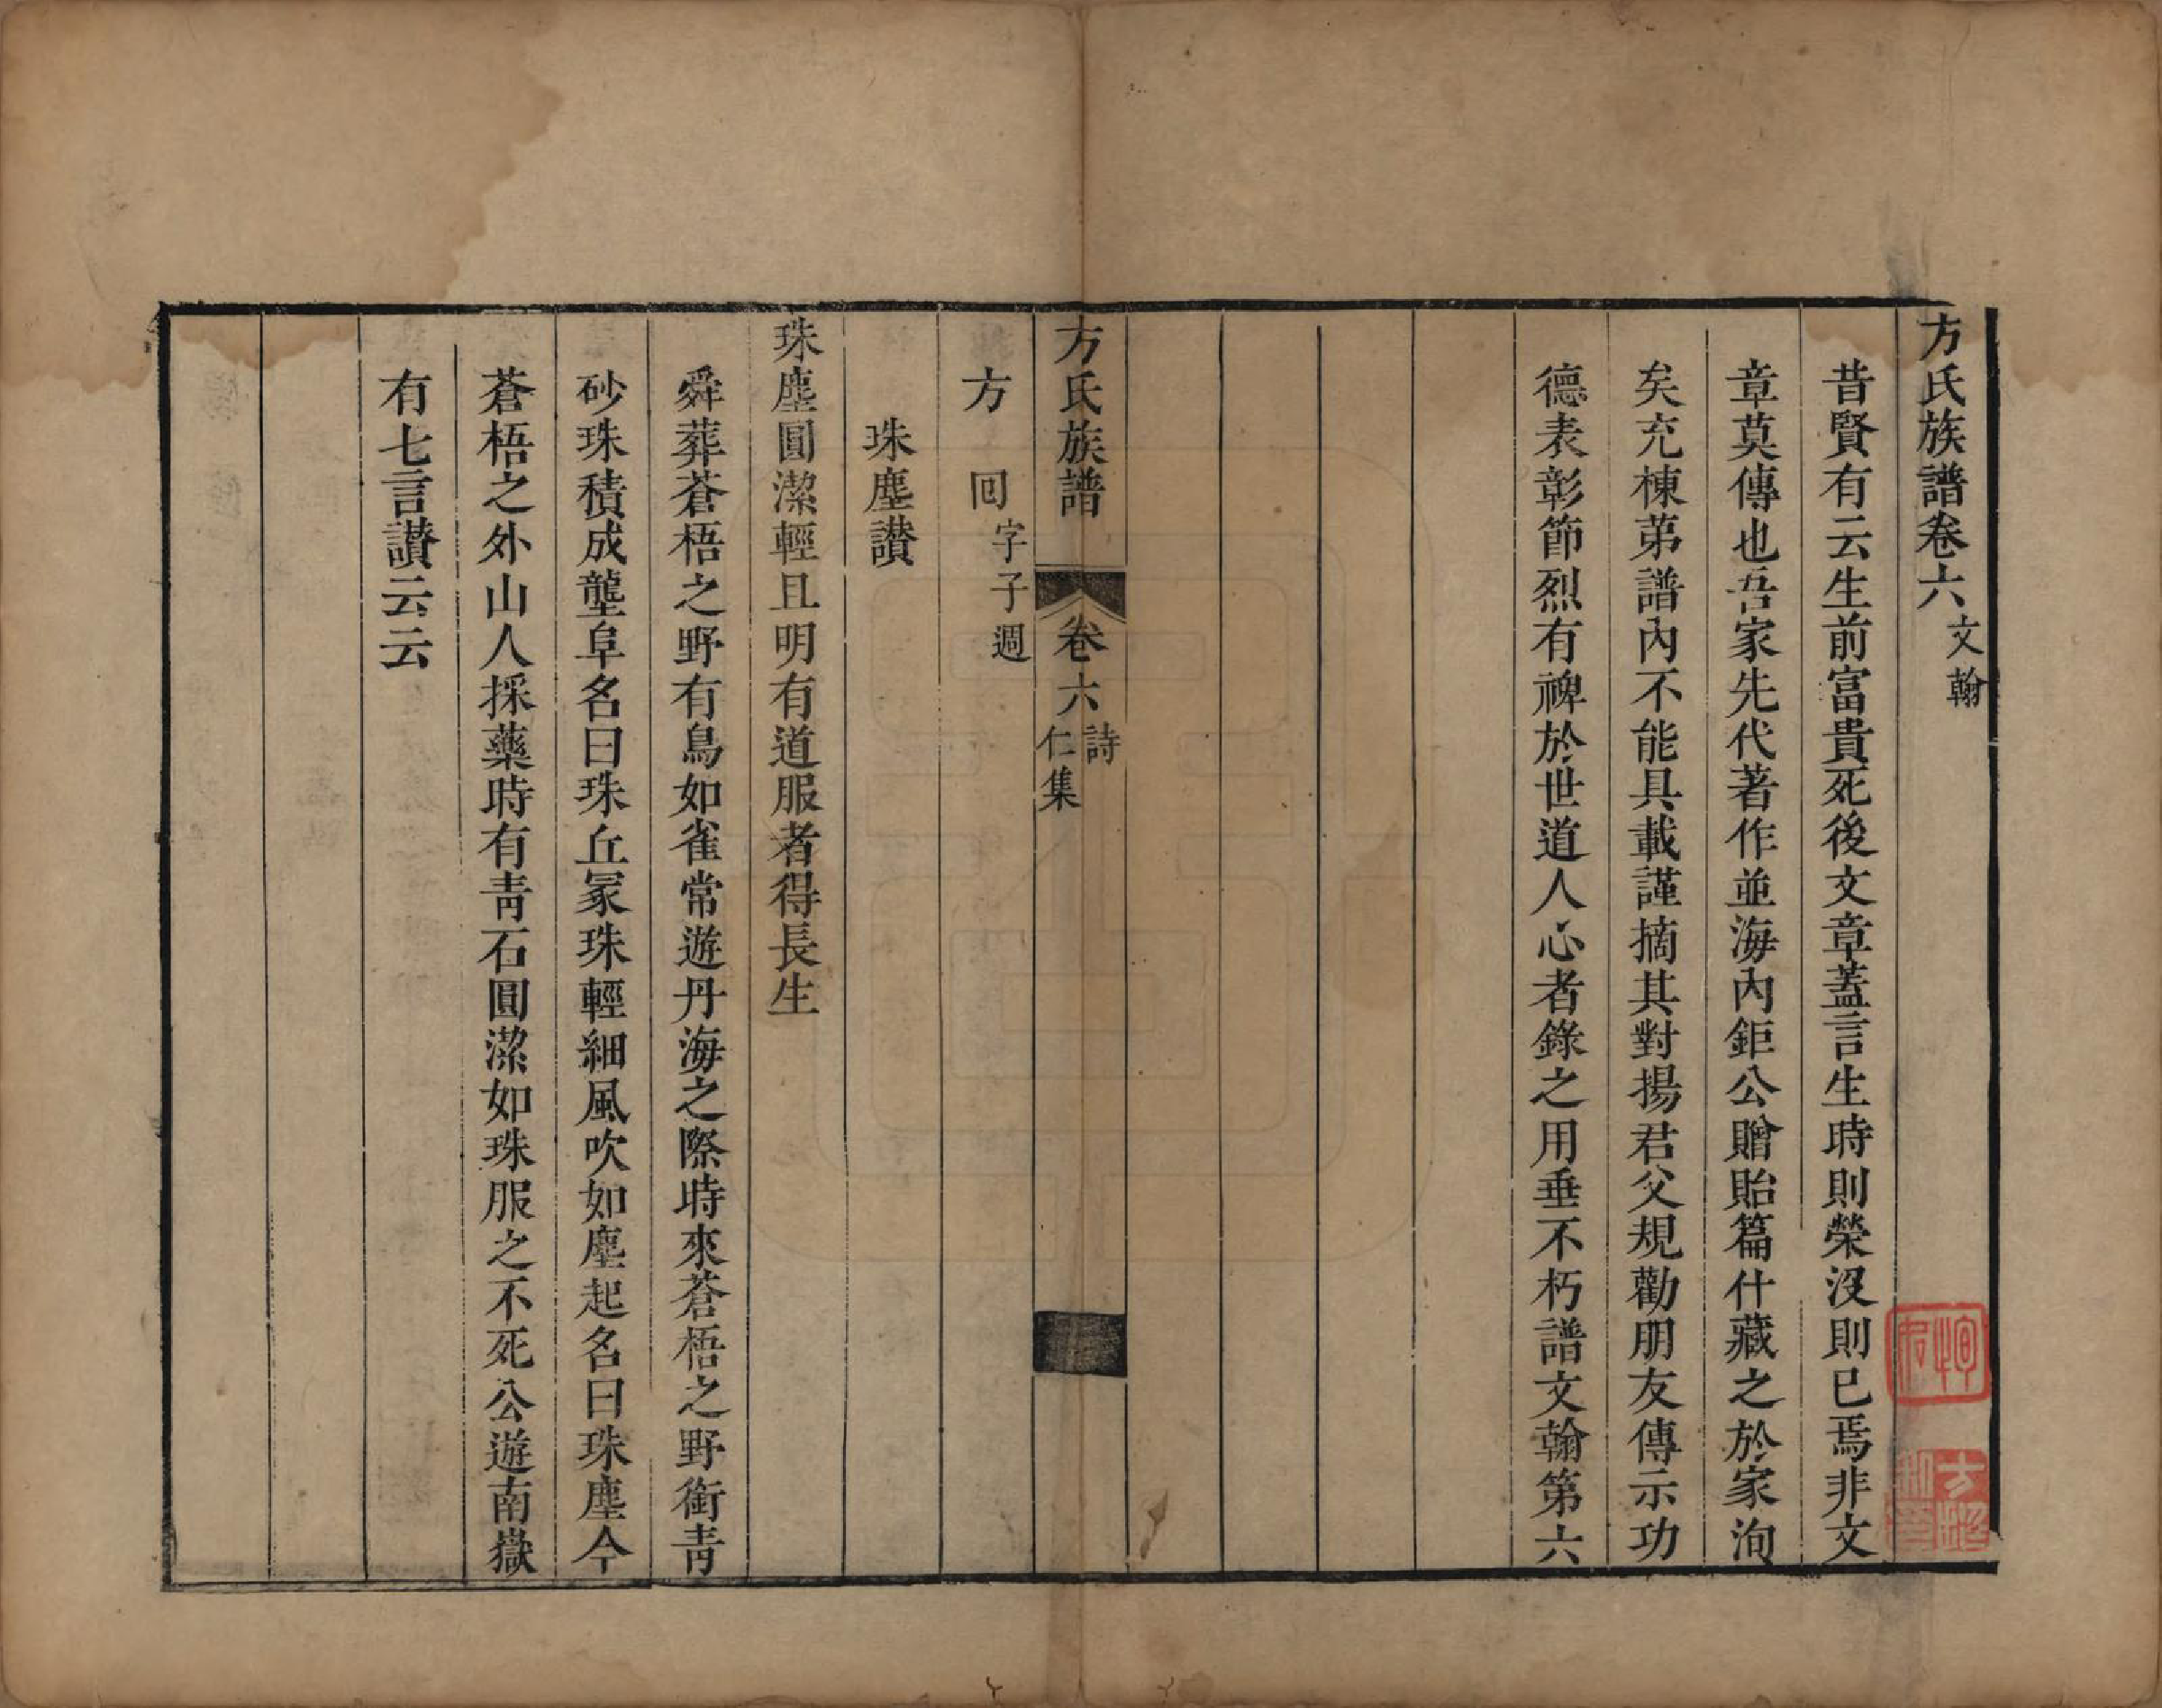 方氏族譜卷六文翰
昔賢有云生前富貴死後文章蓋言生時則榮沒則已焉非文
章莫傳也吾家先代著作並海內鉅公贈貽篇什藏之於家洵
矣充棟第譜內不能具載謹摘其對揚君父規勸朋友傳示功
德表彰節烈有禆於世道人心者錄之用垂不朽譜文翰第六
方氏族譜 卷六 詩 仁集
方 回 字子週
珠塵讃
珠塵圓潔輕且明有道服者得長生
舜葬蒼梧之野有鳥如雀常遊丹海之際時來蒼梧之野銜靑
砂珠積成壟阜名曰珠丘冢珠輕細風吹如塵起名曰珠塵今
蒼梧之外山人採藥時有靑石圓潔如珠服之不死公遊南嶽
有七言讃云云